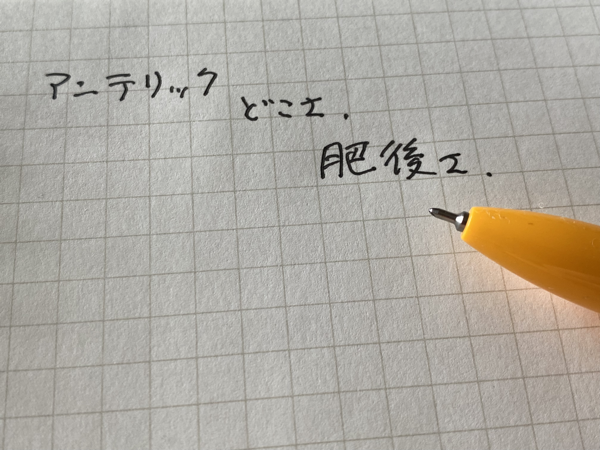 アンテリック
どこさ.
肥後さ.